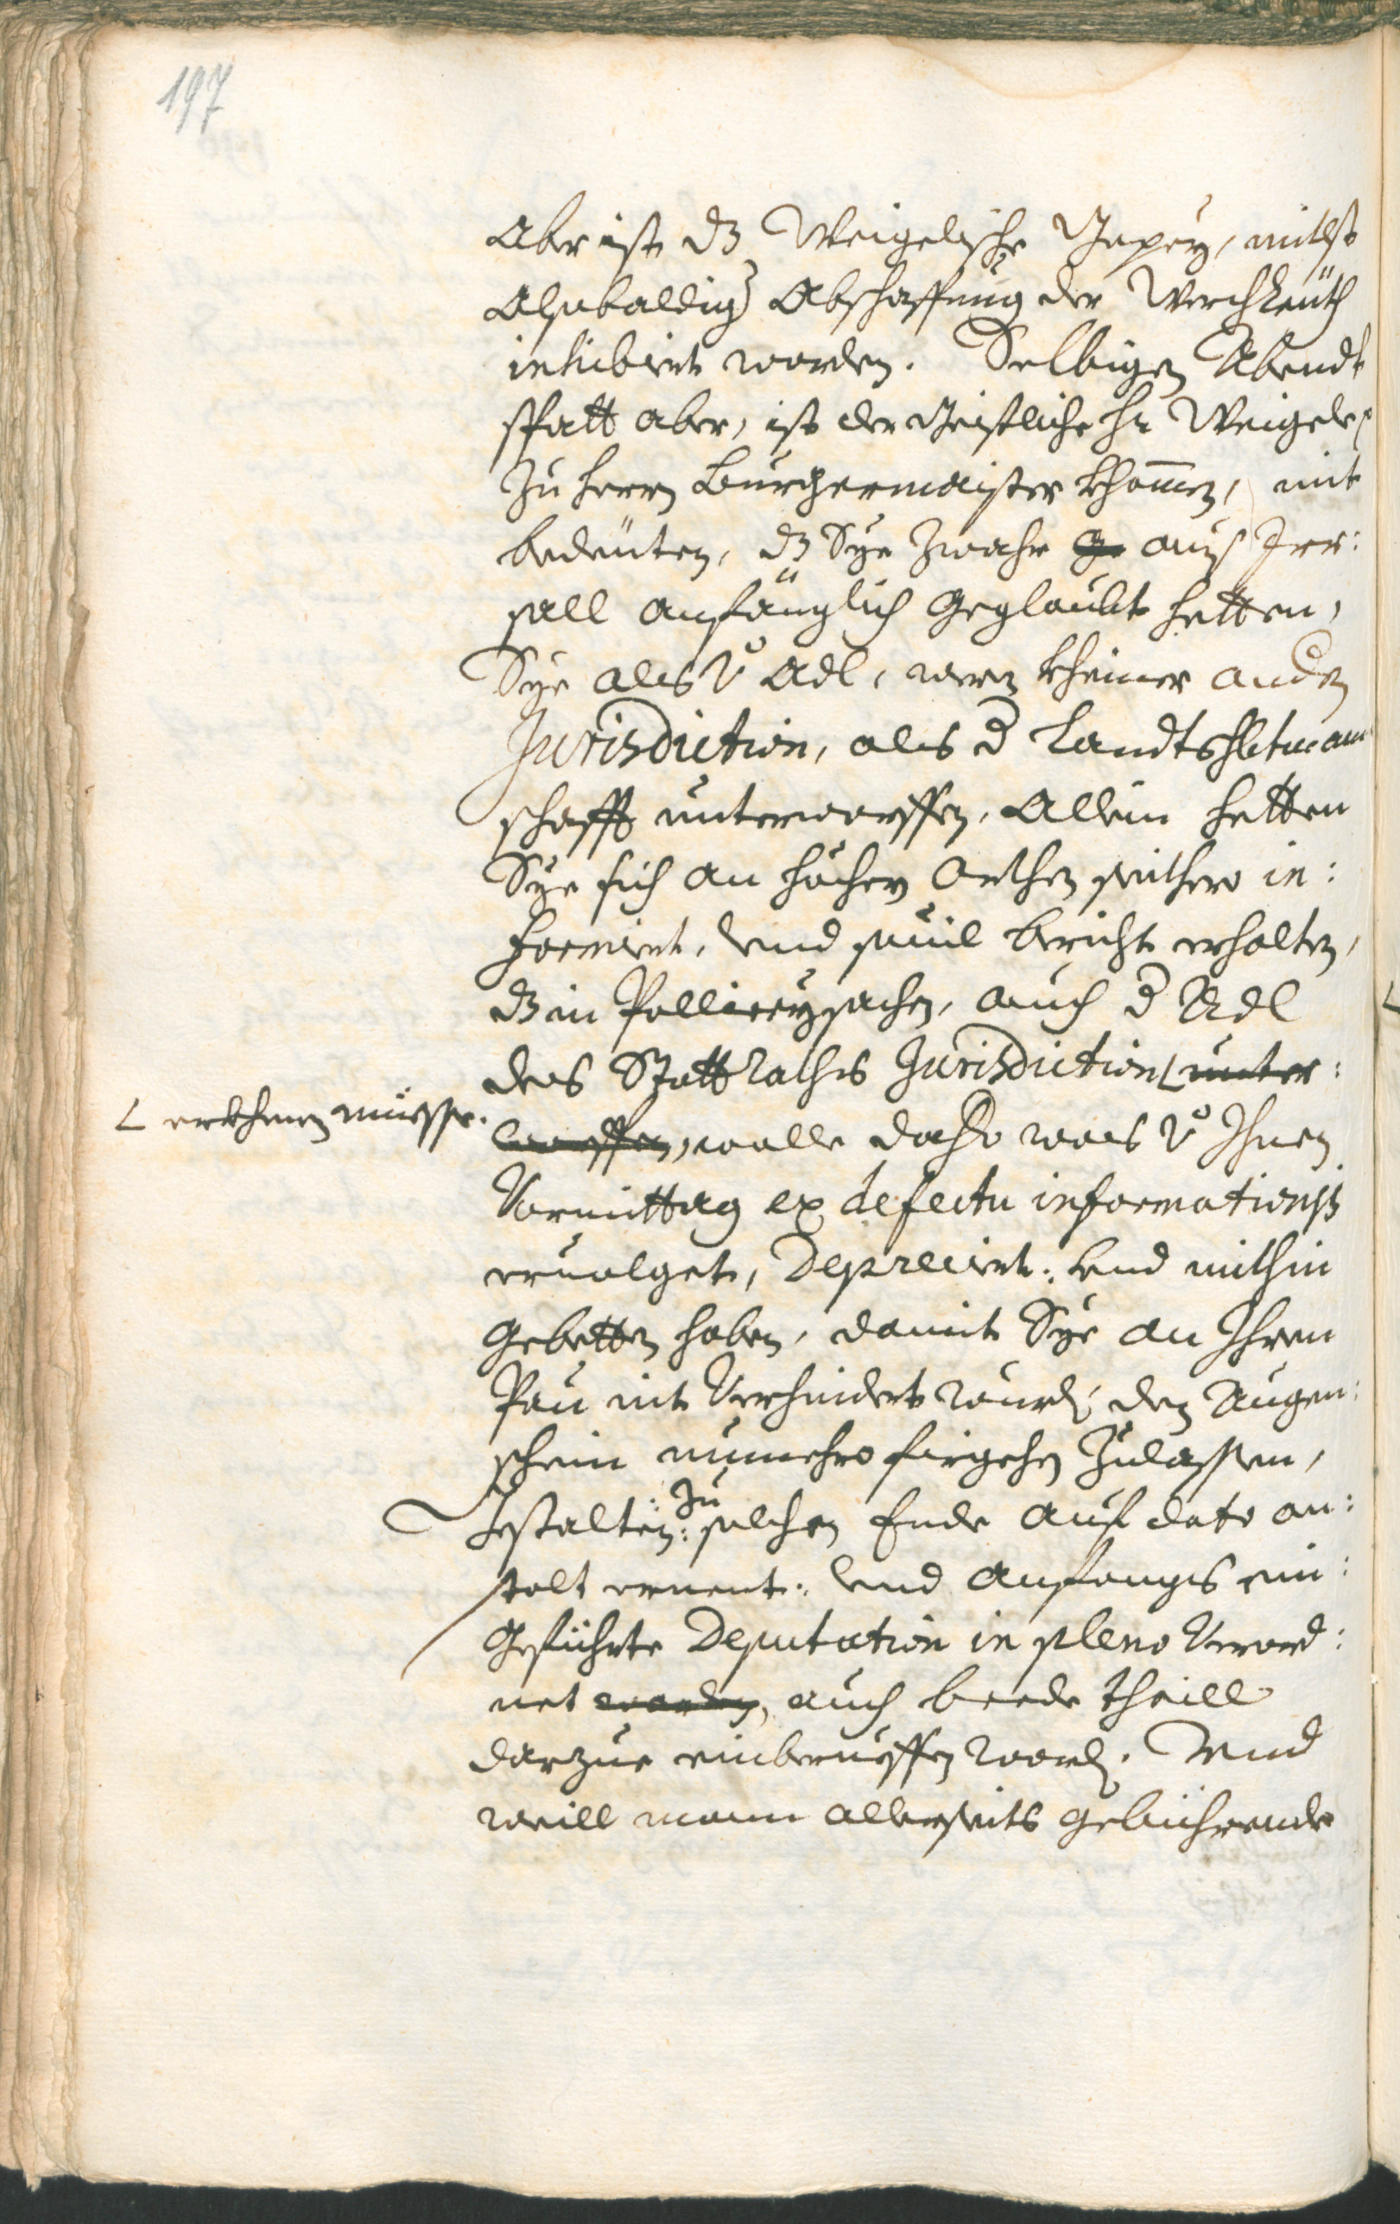 197
Aber ist dz Weigelische Gepey, mitlst
Alsobaldig Abschaffung der Werchleüth
inhibirt worden. Selbigen Abendt
spatt aber, ist der Geistliche Hr Weigele
zu Herrn Burgermaister khommen, mit
bedeüten, dz Sye zwahr aus Irr:
sall anfänglich geglaubt hetten,
Sye als v Adl, wern kheiner andern
Jurisdiction, als d Landtshbtman
schafft unterworffen, Allein hetten
Sye sich an höchern Orthen seithero in:
formirt, vnd souil bericht erhalten,
dz in Pollicey sachen, auch d Adl
des Statt Raths Jurisdiction unter:
L erkhenen müesse.
worffen, wolle daher was v Ihnen
Vormittag ex defectu informationis
eruolget, Deprecirt: vnd mithin
gebetten haben, damit Sye an Ihrem
Pau nit Verhindert wurdn, den Augen:
schein nunmehro firgehen zulassen,
Gestalten: zu solchen Ende auf dato an:
stalt ernent: vnd Anfangs ein:
geführte Deputation in pleno Verord:
net worden, auch beede theill
darzue einberueffen wordn. Vnd
weill mann allerseits gebührende